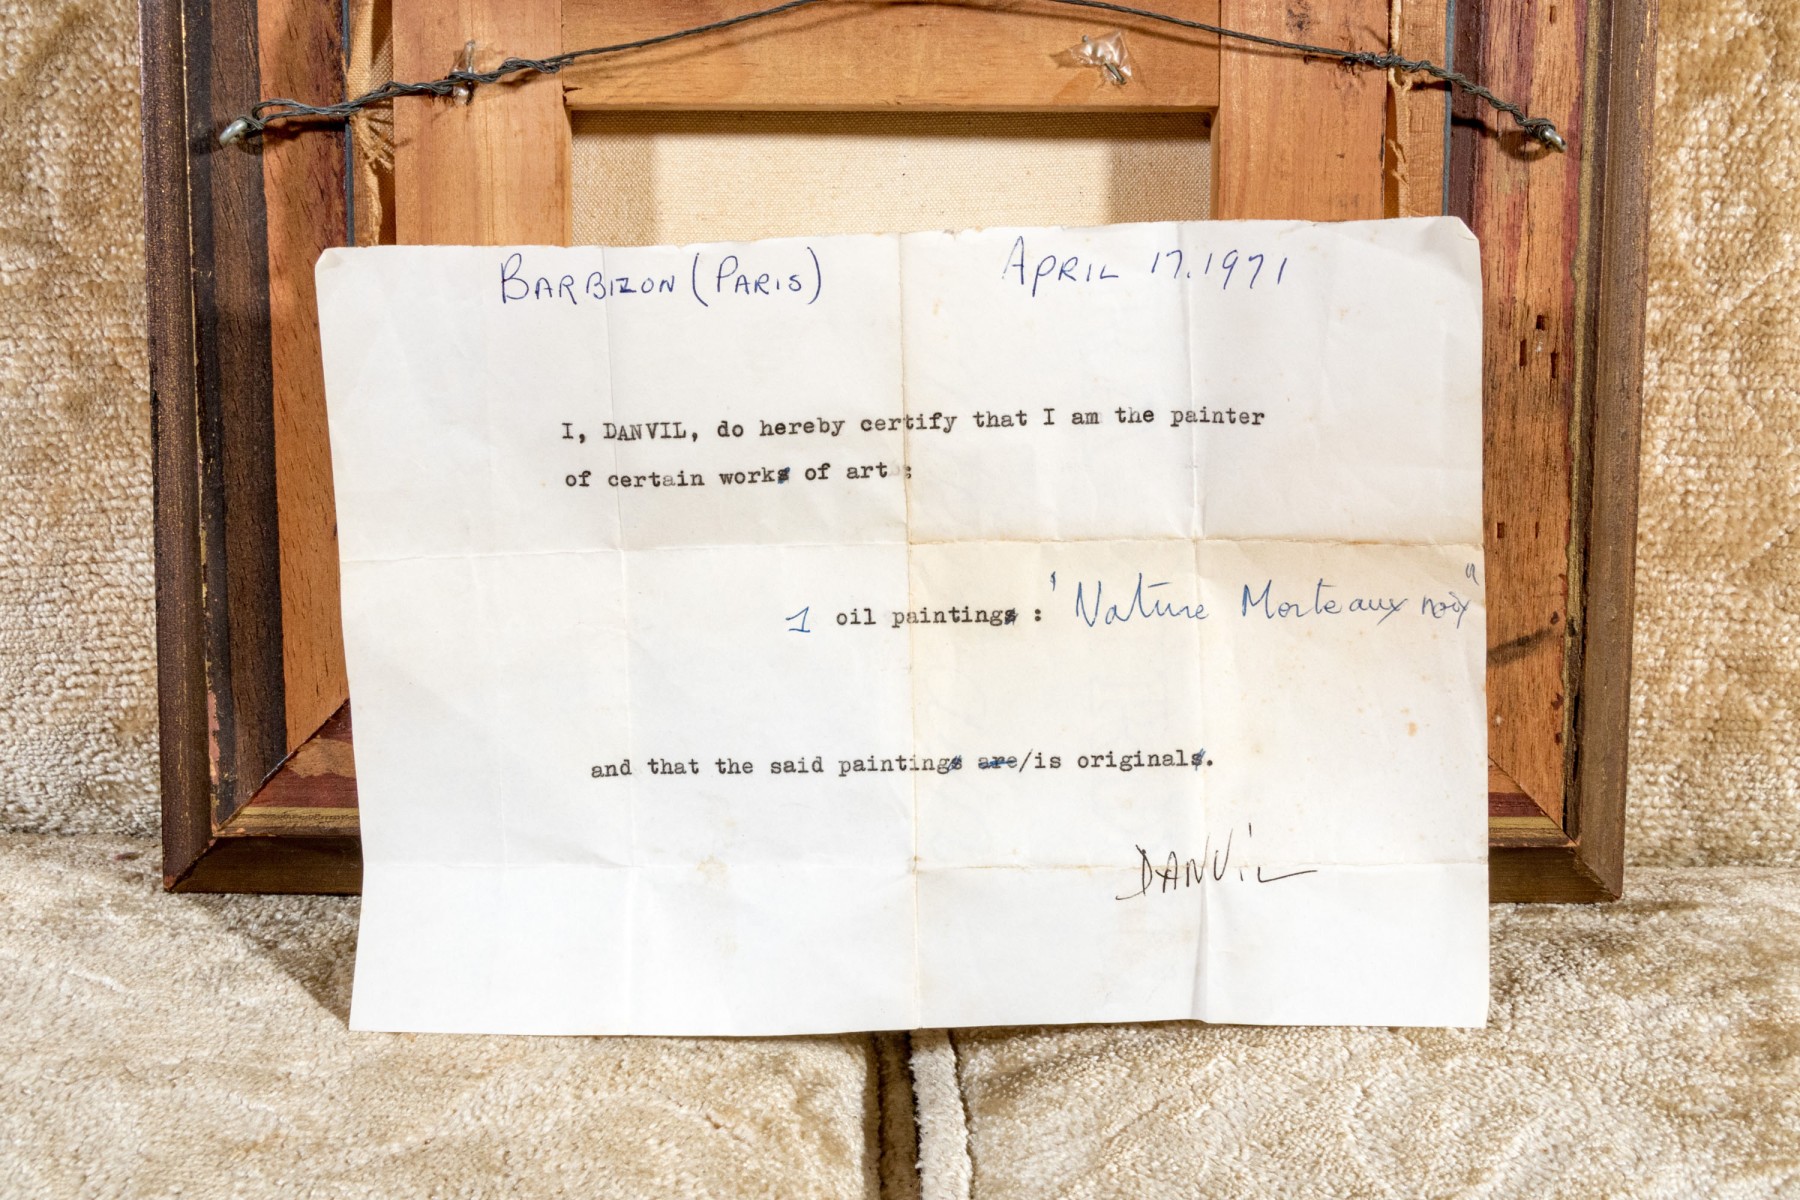 BARBIZON (PARIS) APRIL 17.1971
I, DANVIL, do hereby certify that I am the painter
of certain works of art :
1 oil paintings : "Nature Morte aux noix"
and that the said paintings are/is originals.
DANViL